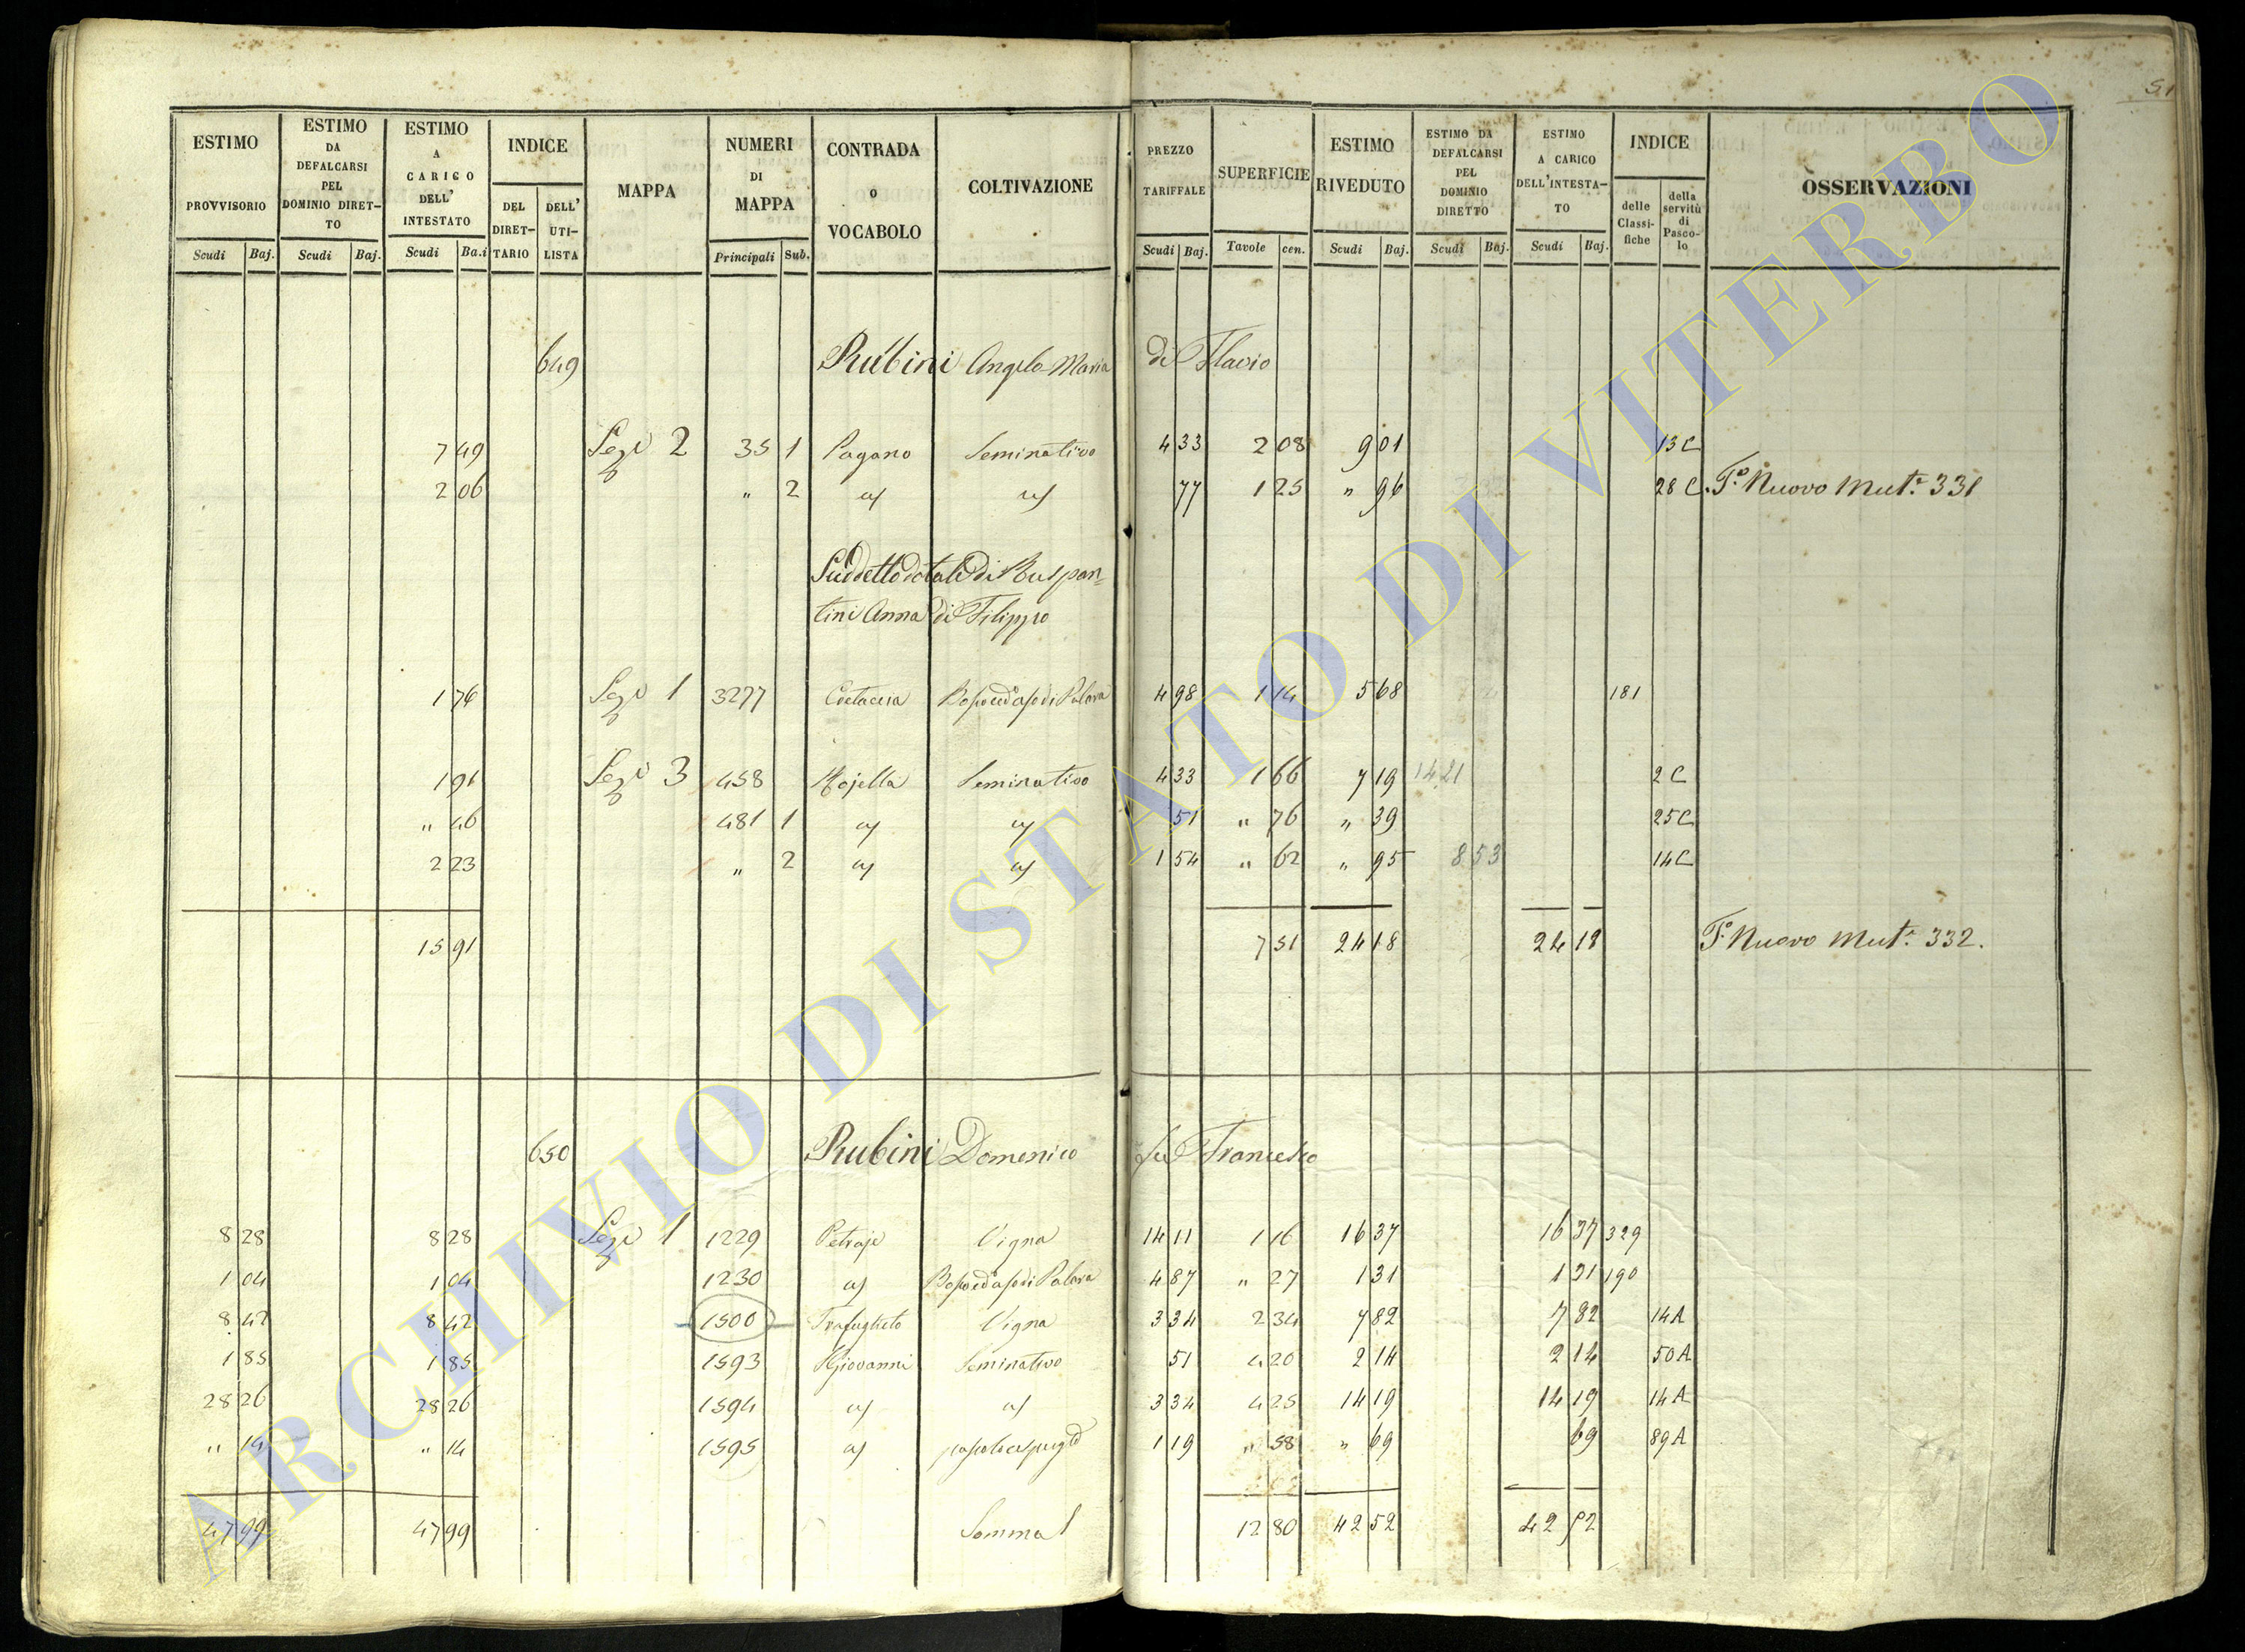 51
ESTIMO PROVVISORIO Scudi Baj.
ESTIMO DA DEFALCARSI PEL DOMINIO DIRET-TO Scudi Baj.
ESTIMO A CARICO DELL' INTESTATO Scudi Ba.i
INDICE DEL DIRET-TARIO DELL' UTI-LISTA
MAPPA
NUMERI DI MAPPA Principali Sub.
CONTRADA O VOCABOLO
COLTIVAZIONE
PREZZO TARIFFALE Scudi Baj.
SUPERFICIE Tavole cen.
ESTIMO RIVEDUTO Scudi Baj.
ESTIMO DA DEFALCARSI PEL DOMINIO DIRETTO Scudi Baj.
ESTIMO A CARICO DELL'INTESTA-TO Scudi Baj.
INDICE delle Classi-fiche della servitù di Pasco-lo
OSSERVAZIONI
649 Rubini Angelo Maria di Flavio
7 49 Seze 2 35 1 Pagano Seminativo 4 33 2 08 9 01 13 C
2 06 " 2 77 1 25 " 96 28 C. To. Nuovo Muta. 331
Suddetto dotale di Ruspan=
tini Anna di Filippo
1 76 Seze 1 3277 4 98 1 14 5 68 181
1 91 Seze 3 458 Mojella Seminativo 4 33 1 66 7 19 14 21 2 C
" 46 481 1 51 " 76 " 39 25 C
2 23 " 2 1 54 " 62 " 95 8 53 14 C
15 91 7 51 24 18 24 18 To. Nuovo Muta. 332.
650 Rubini Domenico fu Francesco
8 28 8 28 Seze 1 1229 Petraje Vigna 14 11 1 16 16 37 16 37 329
1 04 1 04 1230 4 87 " 27 1 31 1 31 190
8 42 8 42 1500 Trafugheto Vigna 3 34 2 34 7 82 7 82 14 A
1 85 1 85 1593 Seminativo 51 4 20 2 14 2 14 50 A
28 26 28 26 1594 3 34 4 25 14 19 14 19 14 A
" 14 " 14 1595 1 19 " 58 " 69 69 89 A
47 99 47 99 Somma 12 80 42 52 42 52
ARCHIVIO DI STATO DI VITERBO